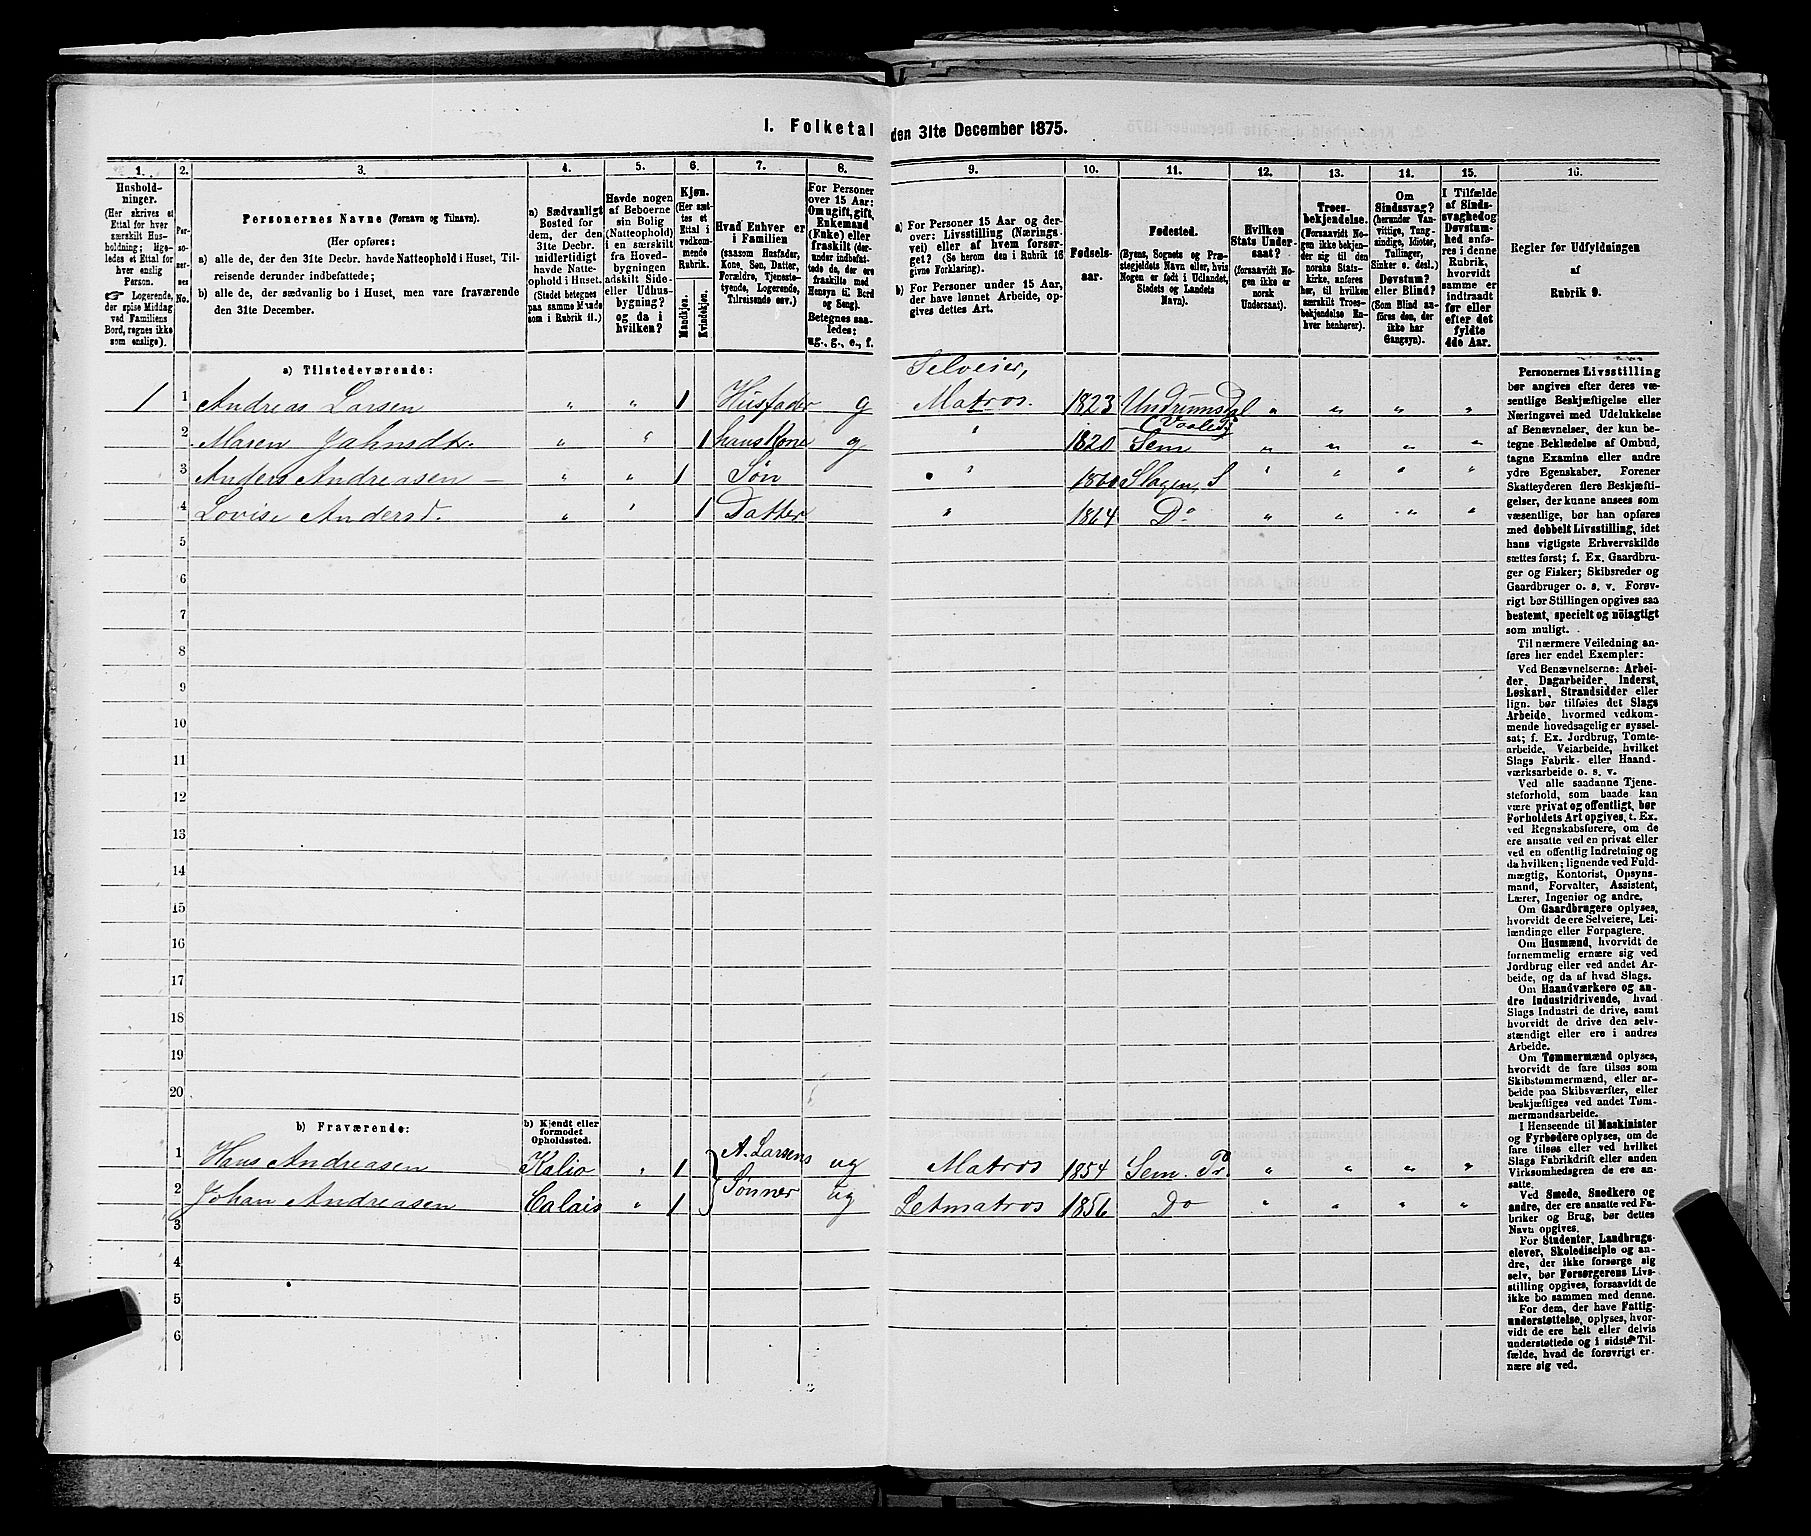 1. Folketal den 31te December 1875.
1. 2. 3. 4. 5. 6. 7. 8. 9. 10. 11. 12. 13. 14. 15. 16.
Hushold-
ninger.
(Her skrives et
Ettal for hver
særskilt Hus-
holdning; lige-
ledes et Ettal for
hver enslig
Person.
☞ Logerende,
der spise Middag
ved Familiens
Bord, regnes ikke
som enslige).
Per-
so-
ner-
nes
No.
Personernes Navne (Fornavn og Tilnavn).
(Her opføres:
a) alle de, der den 31te Decbr. havde Natteophold i Huset, Til-
reisende derunder indbefattede;
b) alle de, der sædvanlig bo i Huset, men vare fraværende
den 31te December.
a) Sædvanligt
Bosted for
dem, der den
31te Decbr.
midlertidigt
havde Natte-
ophold i Huset.
(Stedet betegnes
paa samme Maade
som i Rubrik 11.)
Havde nogen
af Beboerne
sin Bolig
(Natteophold)
i en særskilt
fra Hoved-
bygningen
adskilt Side-
eller Udhus-
bygning?
og da i
hvilken?
Kjøn.
(Her sæt-
tes et
Ettal i
vedkom-
mende
Rubrik.
Mandkjøn.
Kvindekjøn.
Hvad Enhver er
i Familien
(saasom Husfader,
Kone, Søn, Datter,
Forældre, Tjeneste-
tyende, Logerende,
Tilreisende osv.)
For Personer
over 15 Aar:
Om ugift, gift,
Enkemand
(Enke) eller
fraskilt (der-
under indbefat-
tede de, der ere
fraskilte med
Hensyn til Bord
og Seng).
Betegnes saa-
ledes:
ug., g., e., f.
a) For Personer 15 Aar og der-
over: Livsstilling (Nærings-
vei) eller af hvem forsør-
get? (Se herom den i Rubrik 16
givne Forklaring).
b) For Personer under 15 Aar,
der have lønnet Arbeide, op-
gives dettes Art.
Fødsels-
aar.
Fødested.
(Byens, Sognets og Præ-
stegjeldets Navn eller, hvis
Nogen er født i Udlandet,
Stedets og Landets
Navn).
Hvilken
Stats Under-
saat?
(forsaavidt No-
gen ikke er
norsk
Undersaat).
Troes-
bekjendelse.
(Forsaavidt No-
gen ikke bekjen-
der sig til den
norske Stats-
kirke, anføres
her, til hvilken
særskilt Troes-
bekjendelse En-
hver henhører).
Om
Sindssvag?
(herunder Van-
vittige, Tung-
sindige, Idioter,
Tullinger,
Sinker o. desl.)
Døvstum?
eller Blind?
(Som Blind an-
føres den, der
ikke har
Gangsyn).
I Tilfælde
af Sinds-
svaghed og
Døvstum-
hed anfø-
res i denne
Rubrik,
hvorvidt
samme er
indtraadt
før eller
efter det
fyldte
4de Aar.
Regler for Udfyldningen
af
Rubrik 9.
a) Tilstedeværende:
Selveier,
1 1 Andreas Larsen " " 1 Husfader g Matros. 1823 Undrumsdal " " " "
(Vaale)
2 Maren Jahnsdtr. " " 1 hans Kone g " 1820 Sem " " " "
3 Anders Andreasen – " " 1 Søn " " Slagen, S " " " "
4 Lovise Andersd. " " 1 Datter " 1864 Do " " " "
5
6
7
8
9
10
11
12
13
14
15
16
17
18
19
20
b) Fraværende:
b) Kjendt eller
formodet
Opholdssted.
1 Hans Andreasen Kalio " 1 A. Larsens ug Matros 1854 Sem. Pr. " " " "
2 Johan Andreasen Calais " 1 Sønner ug Letmatros 1856 Do " " " "
3
4
5
6
Personernes Livsstilling
bør angives efter deres væ-
sentlige Beskjæftigelse eller
Næringsvei med Udelukkelse
af Benævnelser, der kun be-
tegne Beklædelse af Ombud,
tagne Examina eller andre
ydre Egenskaber. Forener
Skatteyderen flere Beskjæfti-
gelser, der kunne ansees som
væsentlige, bør han opføres
med dobbelt Livsstilling, idet
hans vigtigste Erhvervskilde
sættes først; f. Ex. Gaardbru-
ger og Fisker; Skibsreder og
Gaardbruger o. s. v. Forøv-
rigt bør Stillingen opgives saa
bestemt, specielt og nöiagtigt
som muligt.
Til nærmere Veiledning an-
føres her endel Exempler:
Ved Benævnelserne: Arbei-
der, Dagarbeider, Inderst,
Løskarl, Strandsidder eller
lign. bør tilføies det Slags
Arbeide, hvormed vedkom-
mende hovedsagelig er syssel-
sat; f. Ex. Jordbrug, Tomte-
arbeide, Veiarbeide, hvilket
Slags Fabrik- eller Haand-
værksarbeide o. s. v.
Ved alle saadanne Tjene-
steforhold, som baade kan
være privat og offentligt, bør
Forholdets Art opgives, t. Ex.
ved Regnskabsførere, om de
ere ansatte ved en privat eller
ved en offentlig Indretning og
da hvilken; lignende ved Fuld-
mægtig, Kontorist, Opsyns-
mand, Forvalter, Assistent,
Lærer, Ingeniør og andre.
Om Gaardbrugere oplyses,
hvorvidt de ere Selveiere, Lei-
lændinge eller Forpagtere.
Om Husmænd, hvorvidt de
fornemmelig ernære sig ved
Jordbrug eller ved andet Ar-
beide, og da af hvad Slags.
Om Haandværkere og an-
dre Industridrivende, hvad
Slags Industri de drive, samt
hvorvidt de drive den selv-
stændigt eller ere i andres
Arbeide.
Om Tømmermænd oplyses,
hvorvidt de fare tilsøs som
Skibstømmermænd, eller ar-
beide paa Skibsværfter, eller
beskjæftiges ved andet Tøm-
mermandsarbeide.
I Henseende til Maskinister
og Fyrbødere oplyses, om de
fare tilsøs eller ved hvilket
Slags Fabrikdrift eller anden
Virksomhedsgren de ere an-
satte.
Ved Smede, Snedkere og
andre, der ere ansatte ved Fa-
briker og Brug, bør dettes
Navn opgives.
For Studenter, Landbrugs-
elever, Skoledisciple og an-
dre, der ikke forsørge sig
selv, bør Forsørgerens Livs-
stilling opgives, forsaavidt de
ikke bo sammen med denne.
For dem, der have Fattig-
understøttelse, oplyses, hvor-
vidt de ere helt eller delvis
understøttede og i sidste Til-
fælde, hvad de forøvrigt er-
nære sig ved.